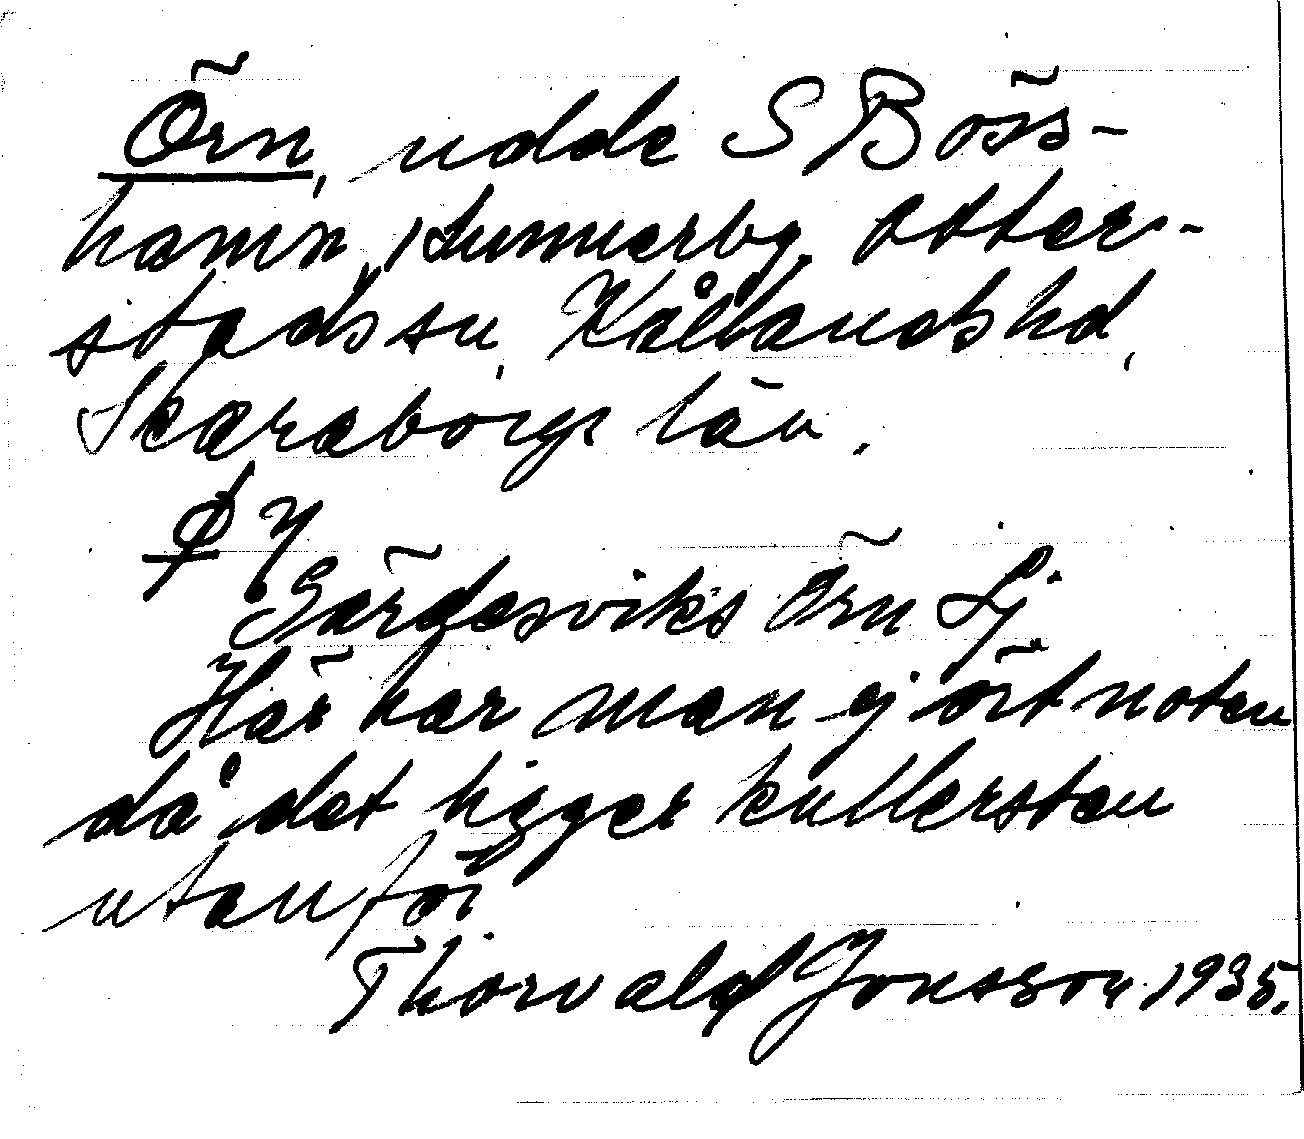 Örn, udde S Böss-
hamn, Hunnerby, Otter-
stads sn, Kållands hd,
Skaraborgs län.
Gärdesviks Örn Lj.
Här har man ej ört noten
då det ligger kullersten
utanför
Thorvald Jonsson 1935.